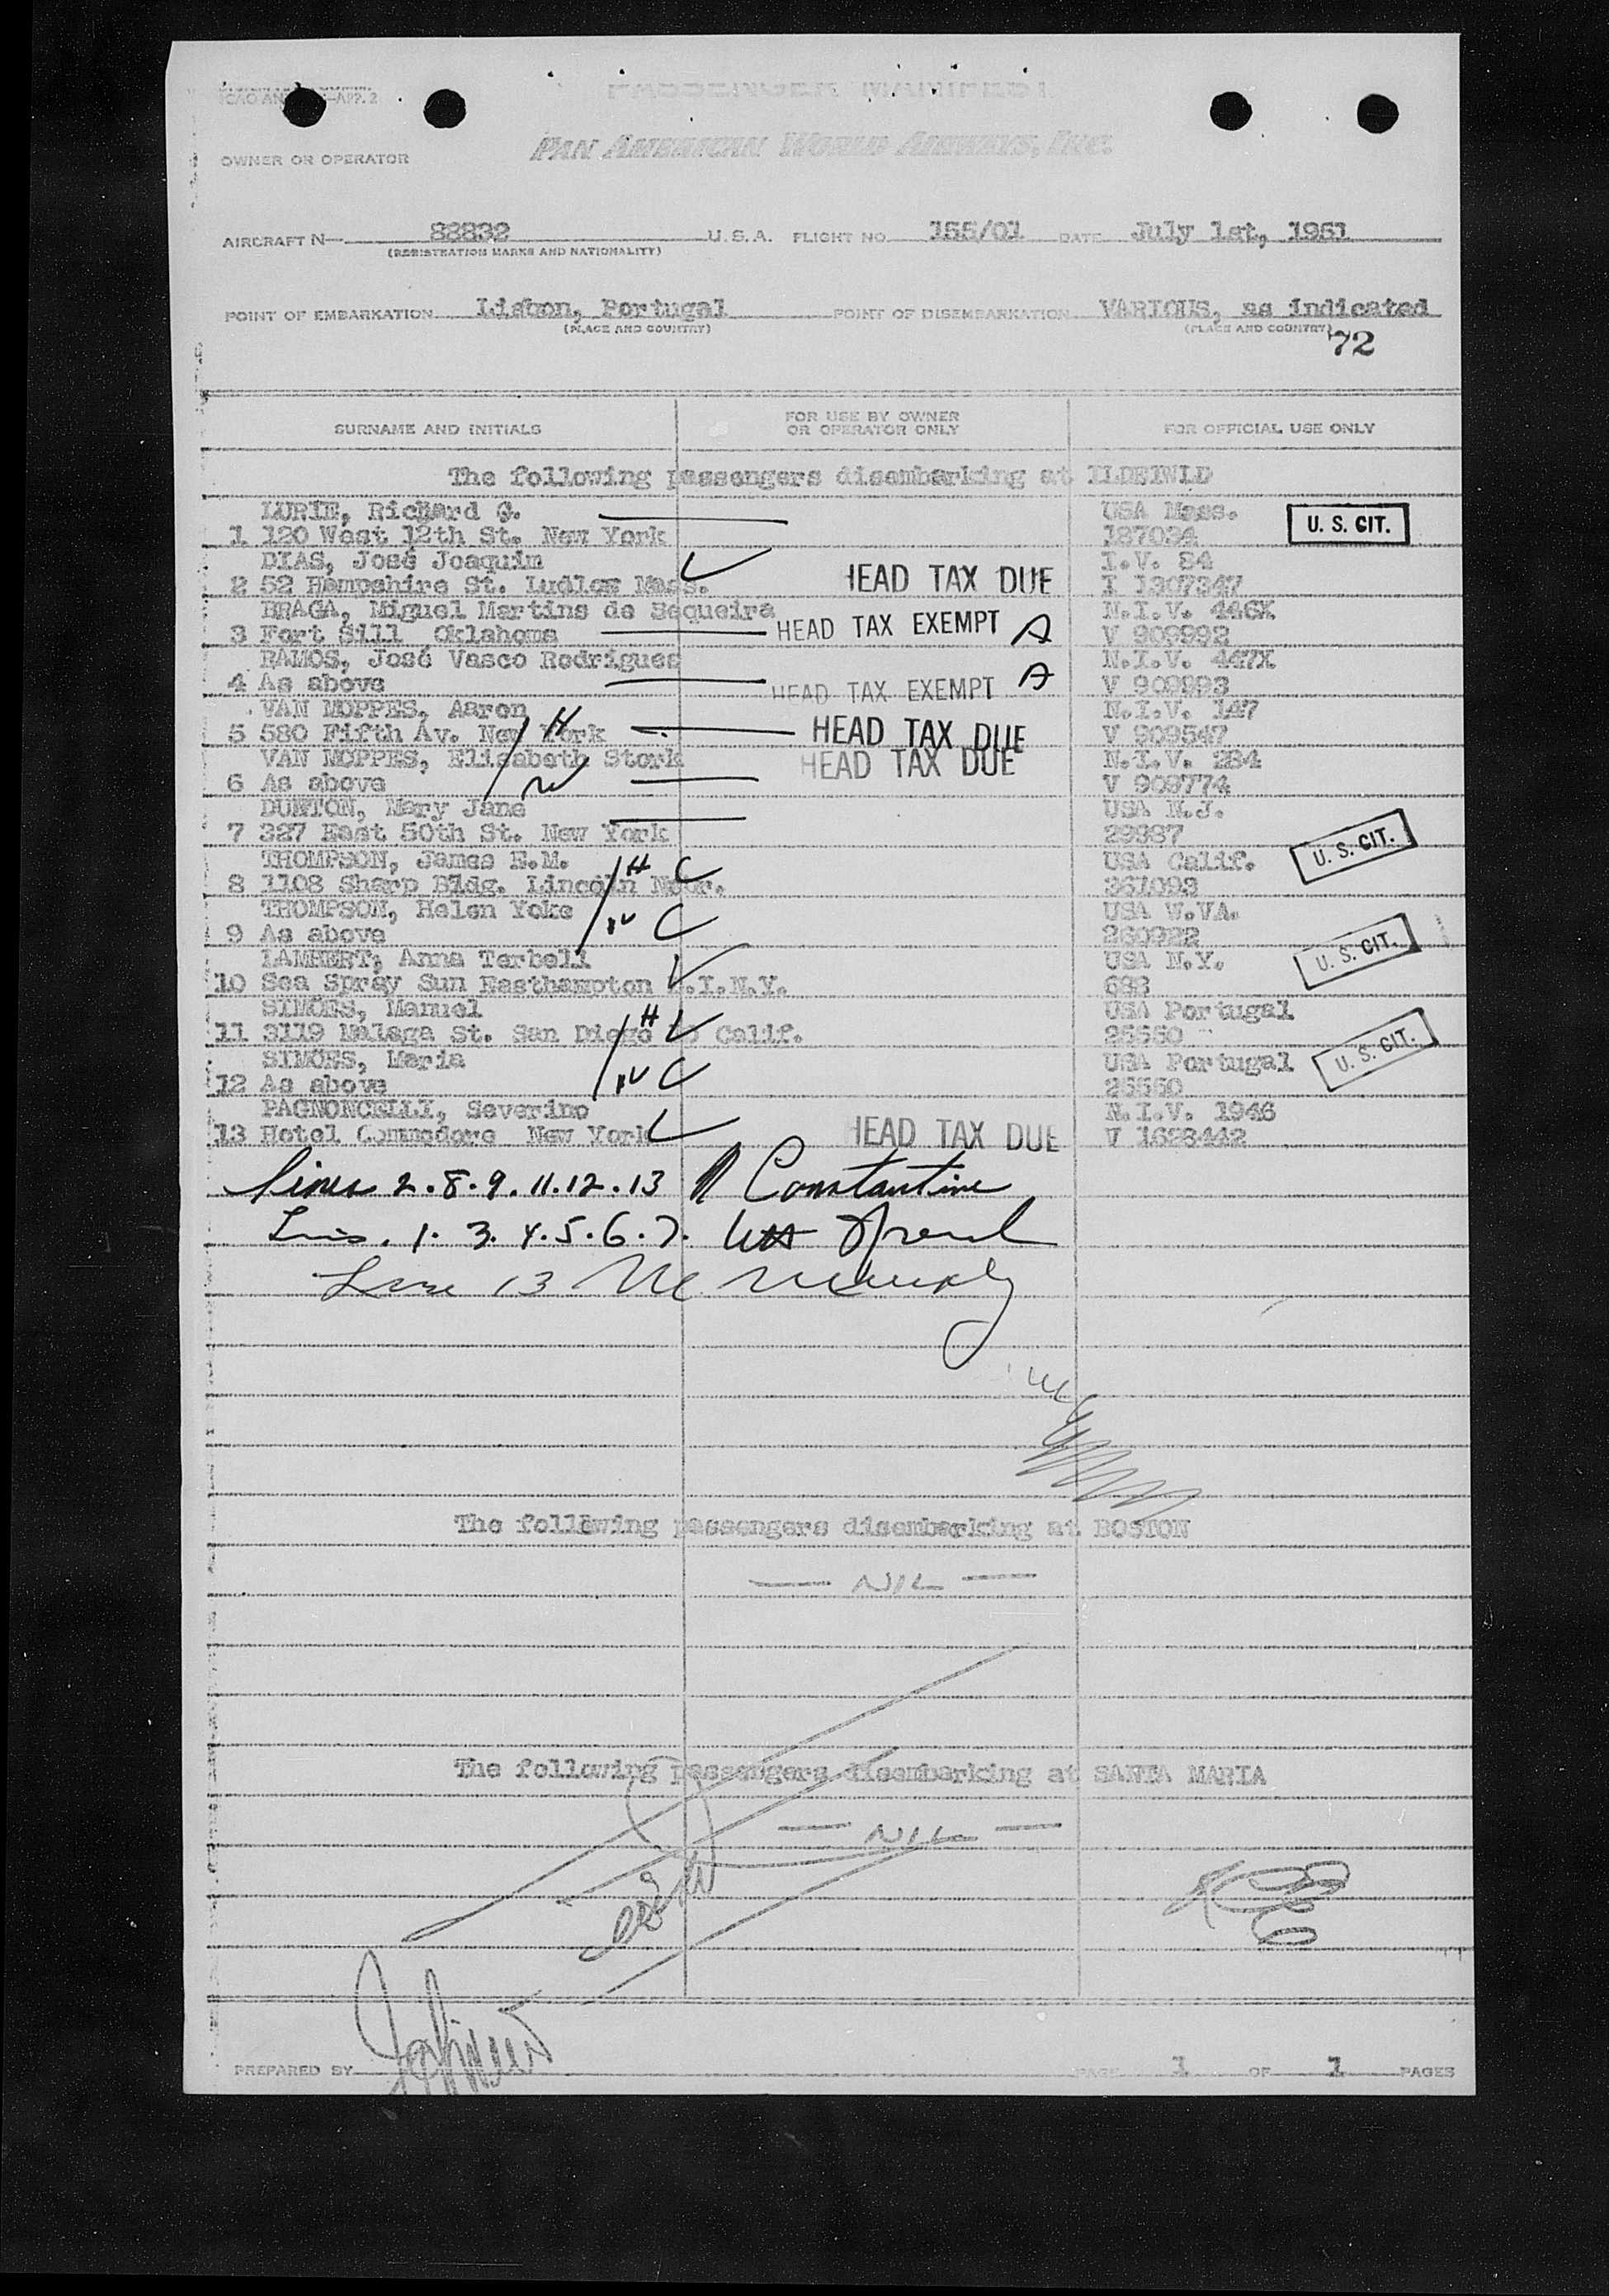 ICAO AN -APP. 2
PASSENGER MANIFEST
OWNER OR OPERATOR PAN AMERICAN WORLD AIRWAYS, INC.
AIRCRAFT N- 88832 U.S.A. FLIGHT NO. 155/01 DATE July 1st, 1951
(REGISTRATION MARKS AND NATIONALITY)
POINT OF EMBARKATION Lisbon, Portugal POINT OF DISEMBARKATION VARIOUS, as indicated
(PLACE AND COUNTRY) (PLACE AND COUNTRY)
72
SURNAME AND INITIALS FOR USE BY OWNER OR OPERATOR ONLY FOR OFFICIAL USE ONLY
The following passengers disembarking at IDLEWILD
LURIE, Richard G. USA Mass.
1 120 West 12th St. New York 187034 U. S. CIT.
DIAS, José Joaquim I.V. 84
2 52 Hampshire St. Ludlow Mass. HEAD TAX DUE I 1307347
BRAGA, Miguel Martins de Sequeira N.I.V. 446X
3 Fort Sill Oklahoma HEAD TAX EXEMPT A V 909992
RAMOS, José Vasco Rodrigues N.I.V. 447X
4 As above HEAD TAX EXEMPT A V 909993
VAN MOPPES, Aaron N.I.V. 147
5 580 Fifth Av. New York H HEAD TAX DUE V 909547
VAN MOPPES, Elisabeth Stork HEAD TAX DUE N.I.V. 284
6 As above W V 909774
DUNTON, Mary Jane USA N.J.
7 327 East 50th St. New York 29887 U. S. CIT.
THOMPSON, James E.M. USA Calif.
8 1108 Sharp Bldg. Lincoln Nebr. H 367093
THOMPSON, Helen Yoke USA W.VA.
9 As above W 260922
LAMBERT, Anna Terbell USA N.Y. U. S. CIT.
10 Sea Spray Sun Easthampton L.I.N.Y. 693
SIMOES, Manuel USA Portugal
11 3119 Malaga St. San Diego Calif. H 25550
SIMOES, Maria USA Portugal U. S. CIT.
12 As above W 25550
PAGNONCELLI, Severino N.I.V. 1946
13 Hotel Commodore New York HEAD TAX DUE V 1628442
Lines 2.8.9.11.12.13 Constantine
Lines. 1. 3. 4.5.6.7.
Line 13
The following passengers disembarking at BOSTON
— NIL —
The following passengers disembarking at SANTA MARIA
— NIL —
PREPARED BY PAGE 1 OF 1 PAGES